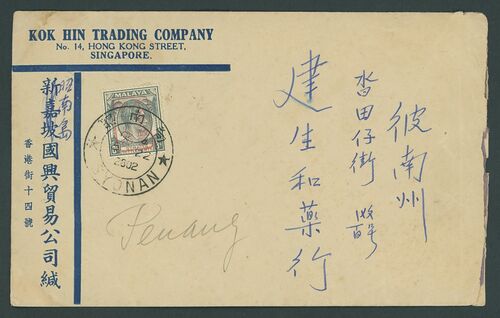 KOK HIN TRADING COMPANY
No. 14, HONG KONG STREET,
SINGAPORE.
昭南島
新嘉坡國興貿易公司緘
香港街十四號
MALAYA
昭南
2602
SYONAN
Penang
彼南州
沓田仔街
建生和藥行